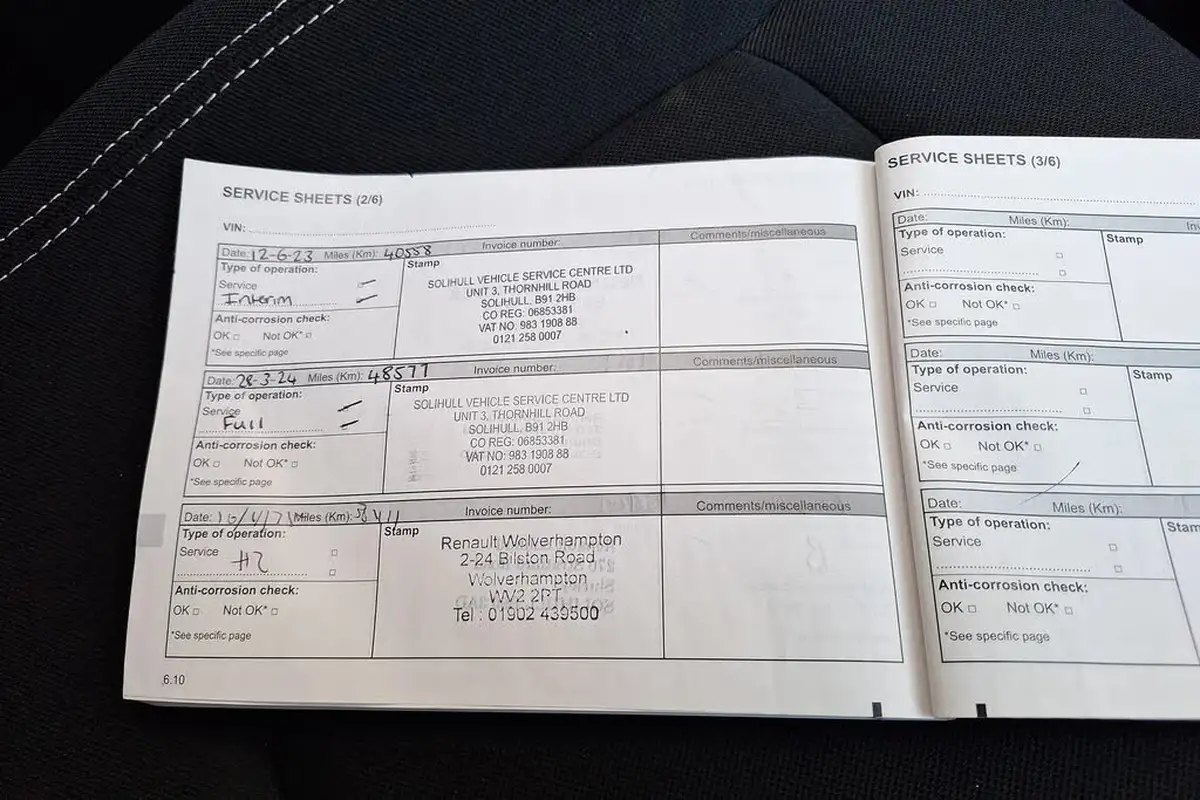 SERVICE SHEETS (2/6)
VIN:
Date: 12-6-23 Miles (Km): 40558 Invoice number: Comments/miscellaneous
Type of operation:
Service
Interim
Anti-corrosion check:
OK Not OK*
*See specific page
Stamp
SOLIHULL VEHICLE SERVICE CENTRE LTD
UNIT 3, THORNHILL ROAD
SOLIHULL, B91 2HB
CO REG: 06853381
VAT NO: 983 1908 88
0121 258 0007
Date: 28-3-24 Miles (Km): 48577 Invoice number: Comments/miscellaneous
Type of operation:
Service
Full
Anti-corrosion check:
OK Not OK*
*See specific page
Stamp
SOLIHULL VEHICLE SERVICE CENTRE LTD
UNIT 3, THORNHILL ROAD
SOLIHULL, B91 2HB
CO REG: 06853381
VAT NO: 983 1908 88
0121 258 0007
Date: Miles (Km): Invoice number: Comments/miscellaneous
Type of operation:
Service
Anti-corrosion check:
OK Not OK*
*See specific page
Stamp
Renault Wolverhampton
2-24 Bilston Road
Wolverhampton
WV2 2PT
Tel : 01902 439500
6.10
SERVICE SHEETS (3/6)
VIN:
Date: Miles (Km):
Type of operation:
Service
Anti-corrosion check:
OK Not OK*
*See specific page
Stamp
Date: Miles (Km):
Type of operation:
Service
Anti-corrosion check:
OK Not OK*
*See specific page
Stamp
Date: Miles (Km):
Type of operation:
Service
Anti-corrosion check:
OK Not OK*
*See specific page